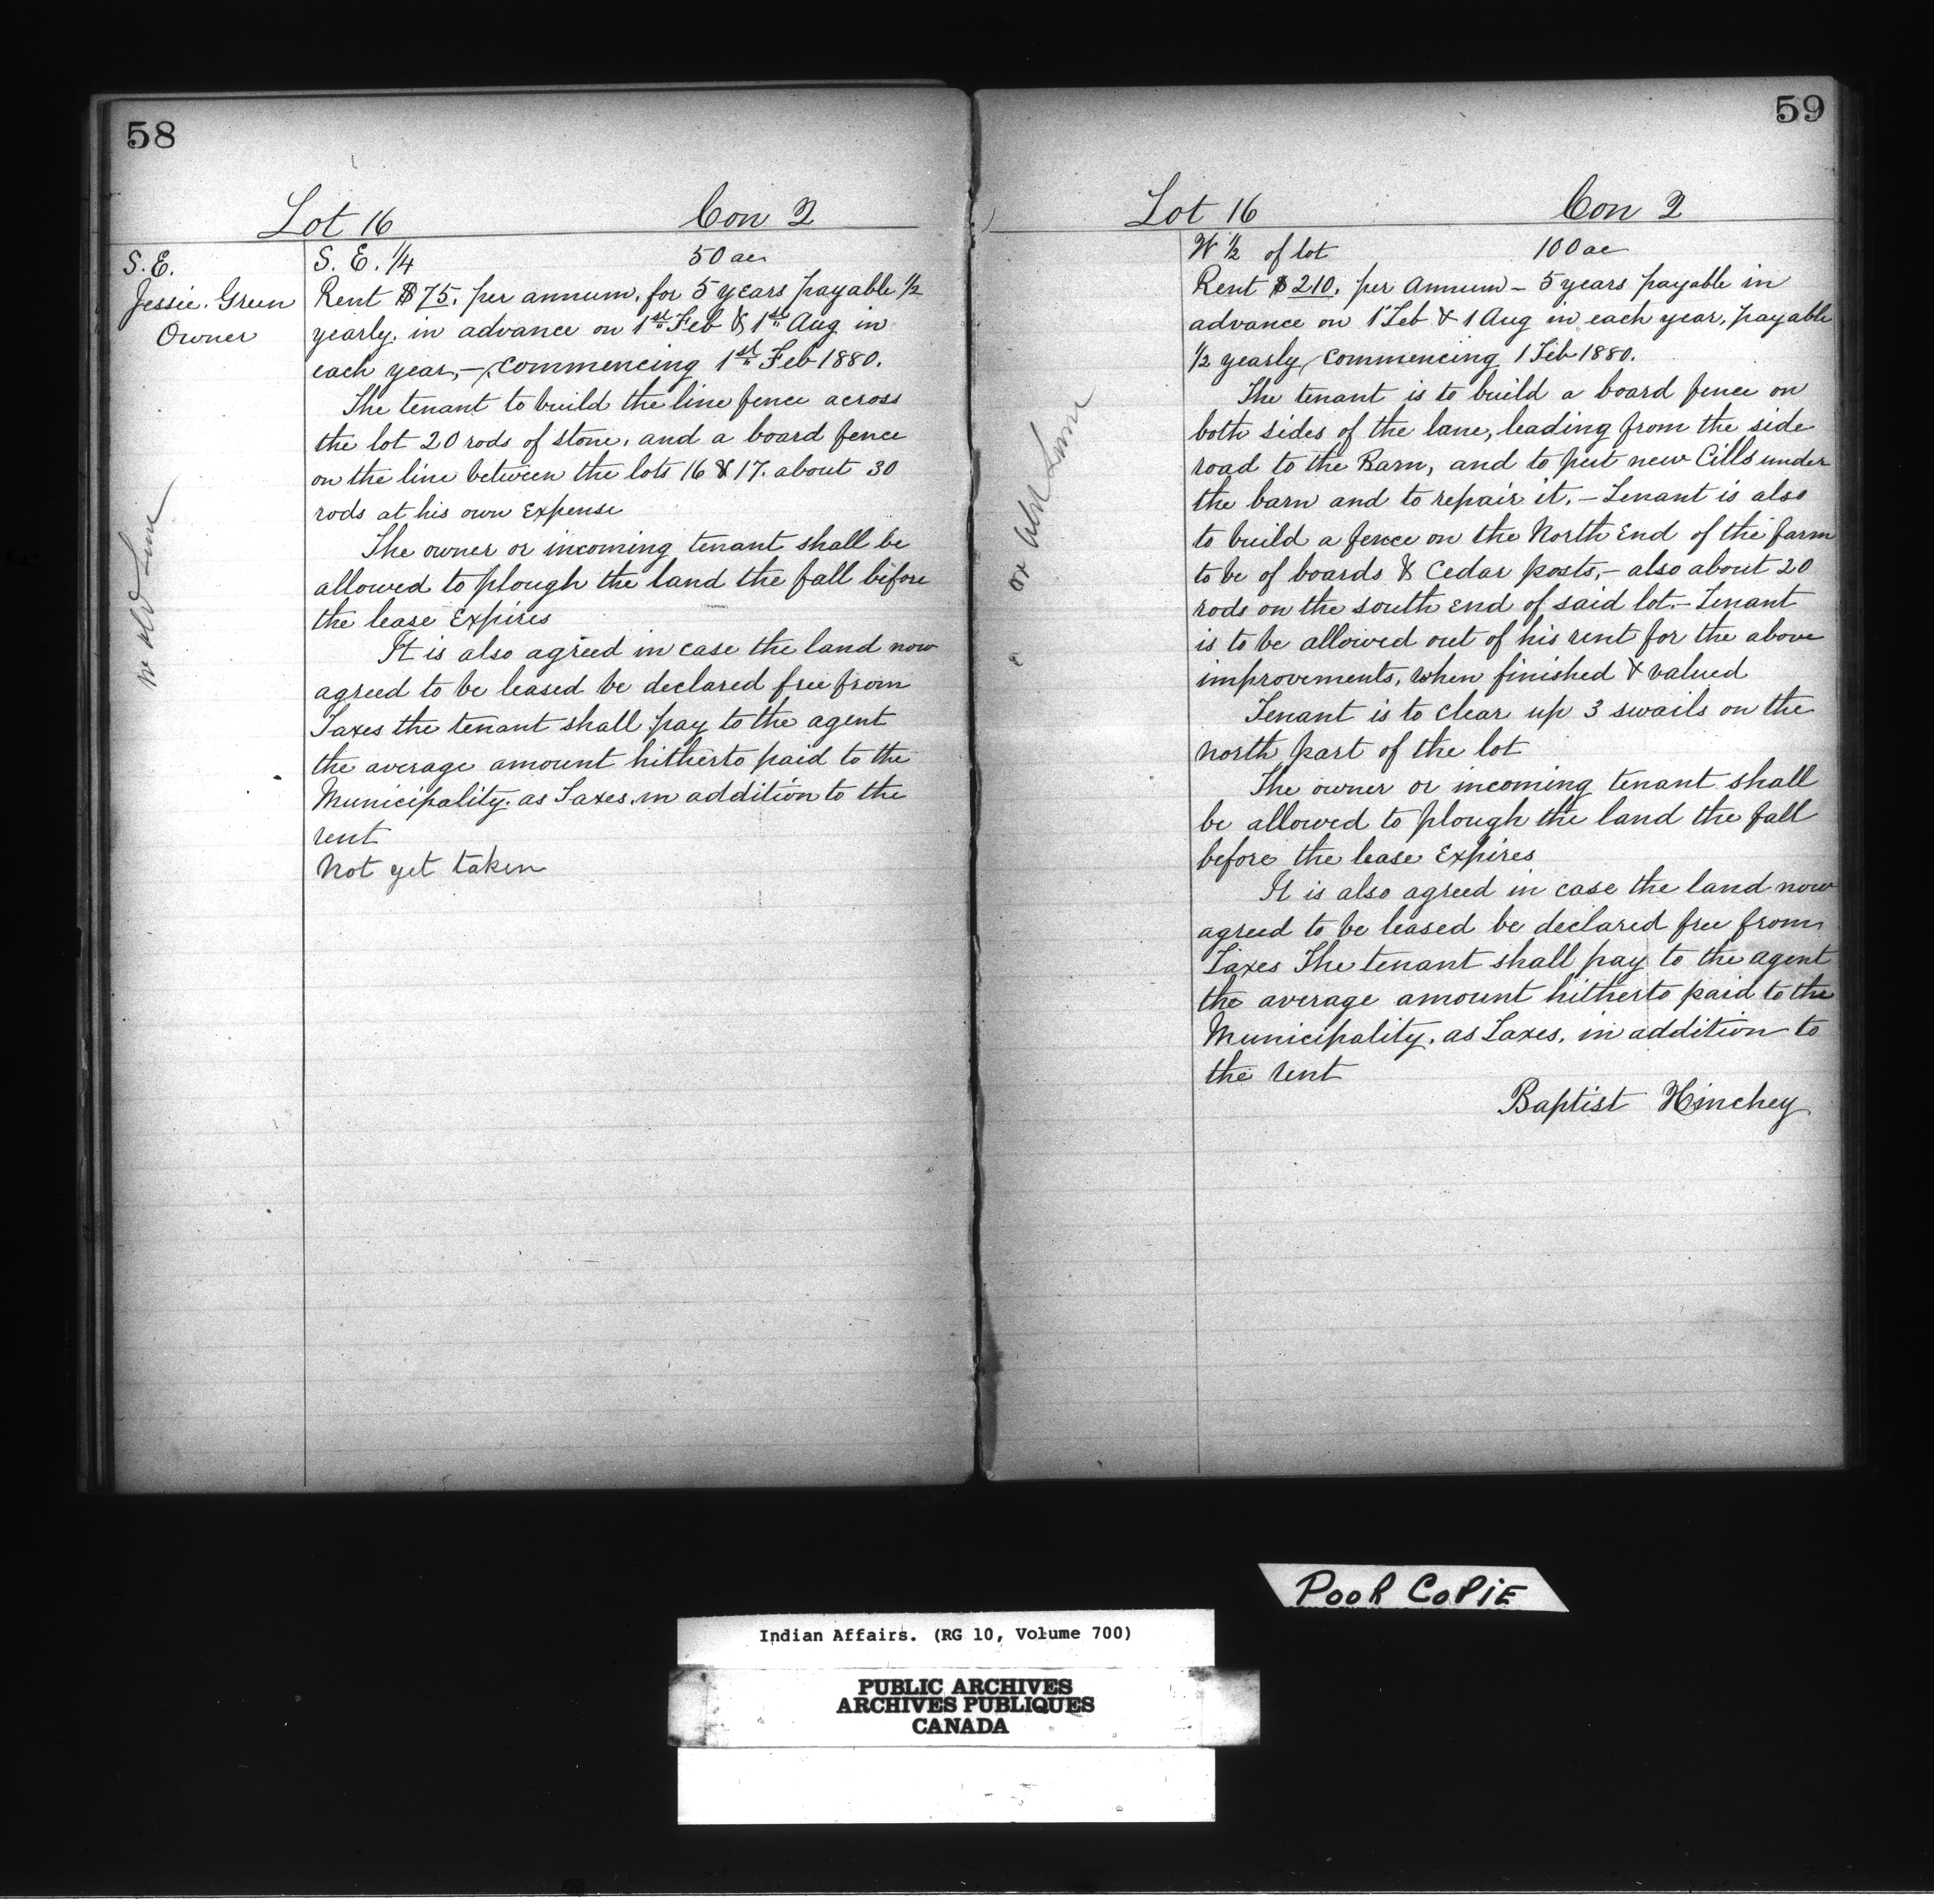 58
Lot 16 Con 2
S.E.
Jessie. Green
Owner
S. E. 1/4 50 ac
Rent $75. per annum. for 5 years payable 1/2
yearly. in advance on 1st Feb & 1st Aug in
each year, - commencing 1st Feb 1880.
The tenant to build the line fence across
the lot 20 rods of stone. and a board fence
on the line between the lots 16 & 17. about 30
rods at his own Expense
The owner or incoming tenant shall be
allowed to plough the land the fall before
the lease Expires
It is also agreed in case the land now
agreed to be leased be declared free from
Taxes the tenant shall pay to the agent
the average amount hitherto paid to the
Municipality. as Taxes. in addition to the
rent
Not yet taken
59
Lot 16 Con 2
W 1/2 of lot 100 ac
Rent $210. per Annum - 5 years payable in
advance on 1 Feb & 1 Aug in each year, payable
1/2 yearly, commencing 1 Feb 1880.
The tenant is to build a board fence on
both sides of the lane, leading from the side
road to the Barn, and to put new Cills under
the barn and to repair it. - Tenant is also
to build a fence on the North End of the farm
to be of boards & Cedar posts, - also about 20
rods on the south End of said lot. - Tenant
is to be allowed out of his rent for the above
improvements, when finished & valued
Tenant is to clear up 3 swails on the
north part of the lot
The owner or incoming tenant shall
be allowed to plough the land the fall
before the lease Expires
It is also agreed in case the land now
agreed to be leased be declared free from
Taxes The tenant shall pay to the agent
the average amount hitherto paid to the
Municipality. as Taxes, in addition to
the rent
Baptist Hinchey
POOR COPIE
Indian Affairs. (RG 10, Volume 700)
PUBLIC ARCHIVES
ARCHIVES PUBLIQUES
CANADA